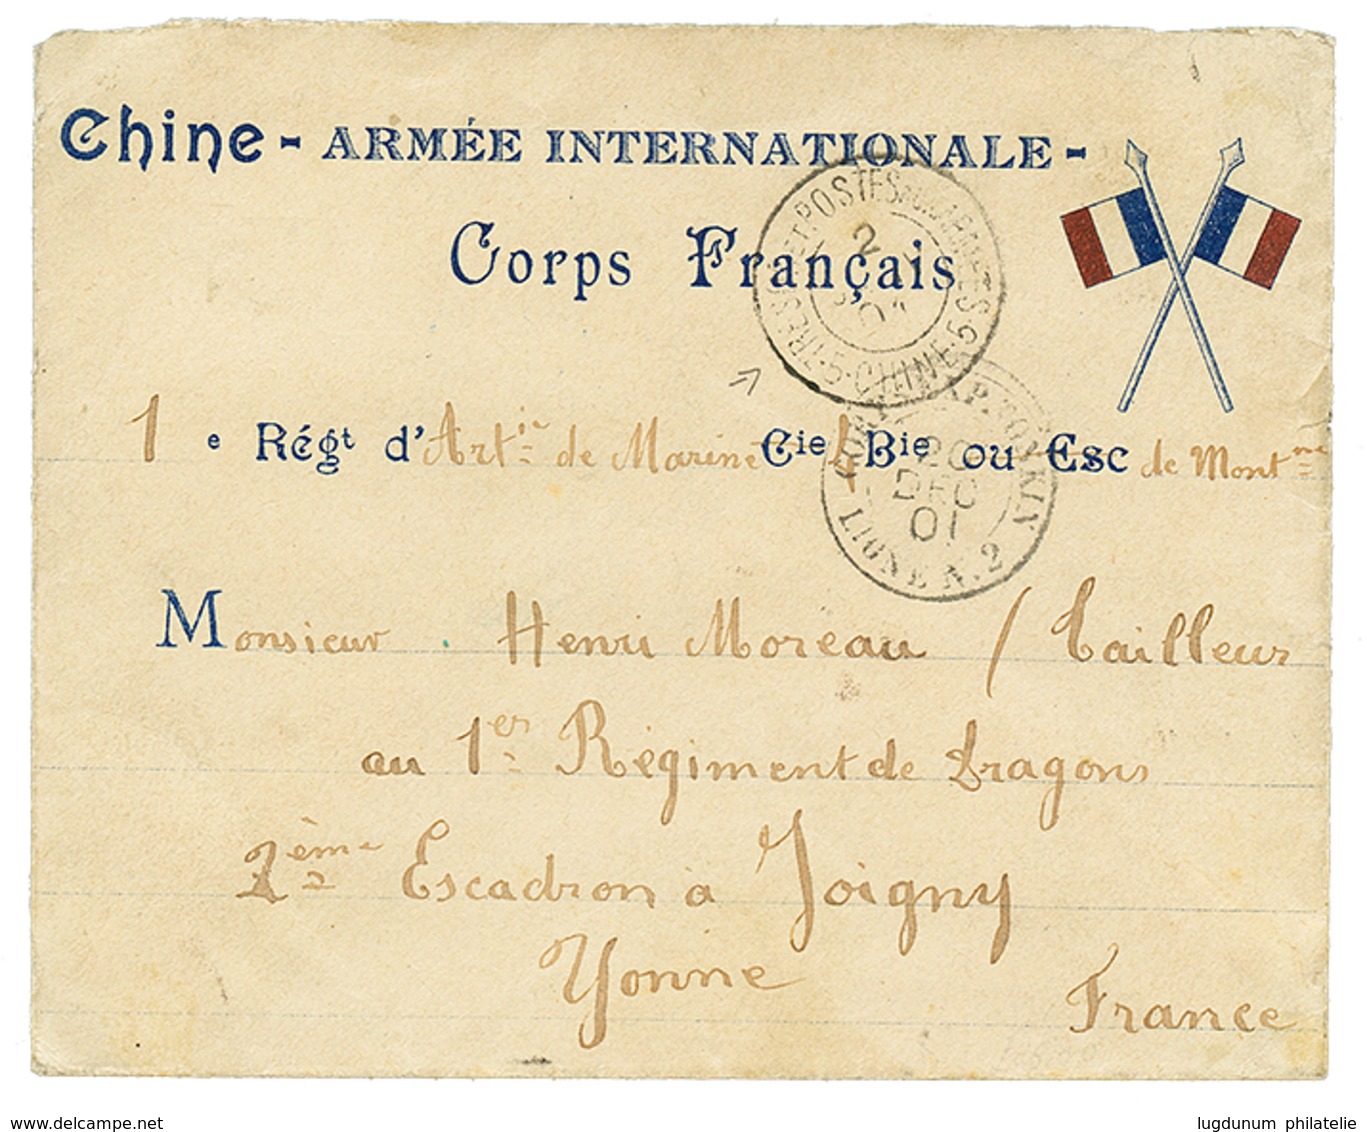 Chine - ARMÉE INTERNATIONALE -
Corps Français
TRESOR ET POSTES AUX ARMEES
2
01
5 · CHINE · 5
1 e Régt d'Artie de Marine Cie Bie ou Esc de Montne
CORR. D. ARM. LAP. TONKIN
20
DEC
01
LIGNE N. 2
Monsieur Henri Moreau / Tailleur
au 1er Régiment de Dragons
2ème Escadron à Joigny
Yonne
France
www.delcampe.net
lugdunum philatelie